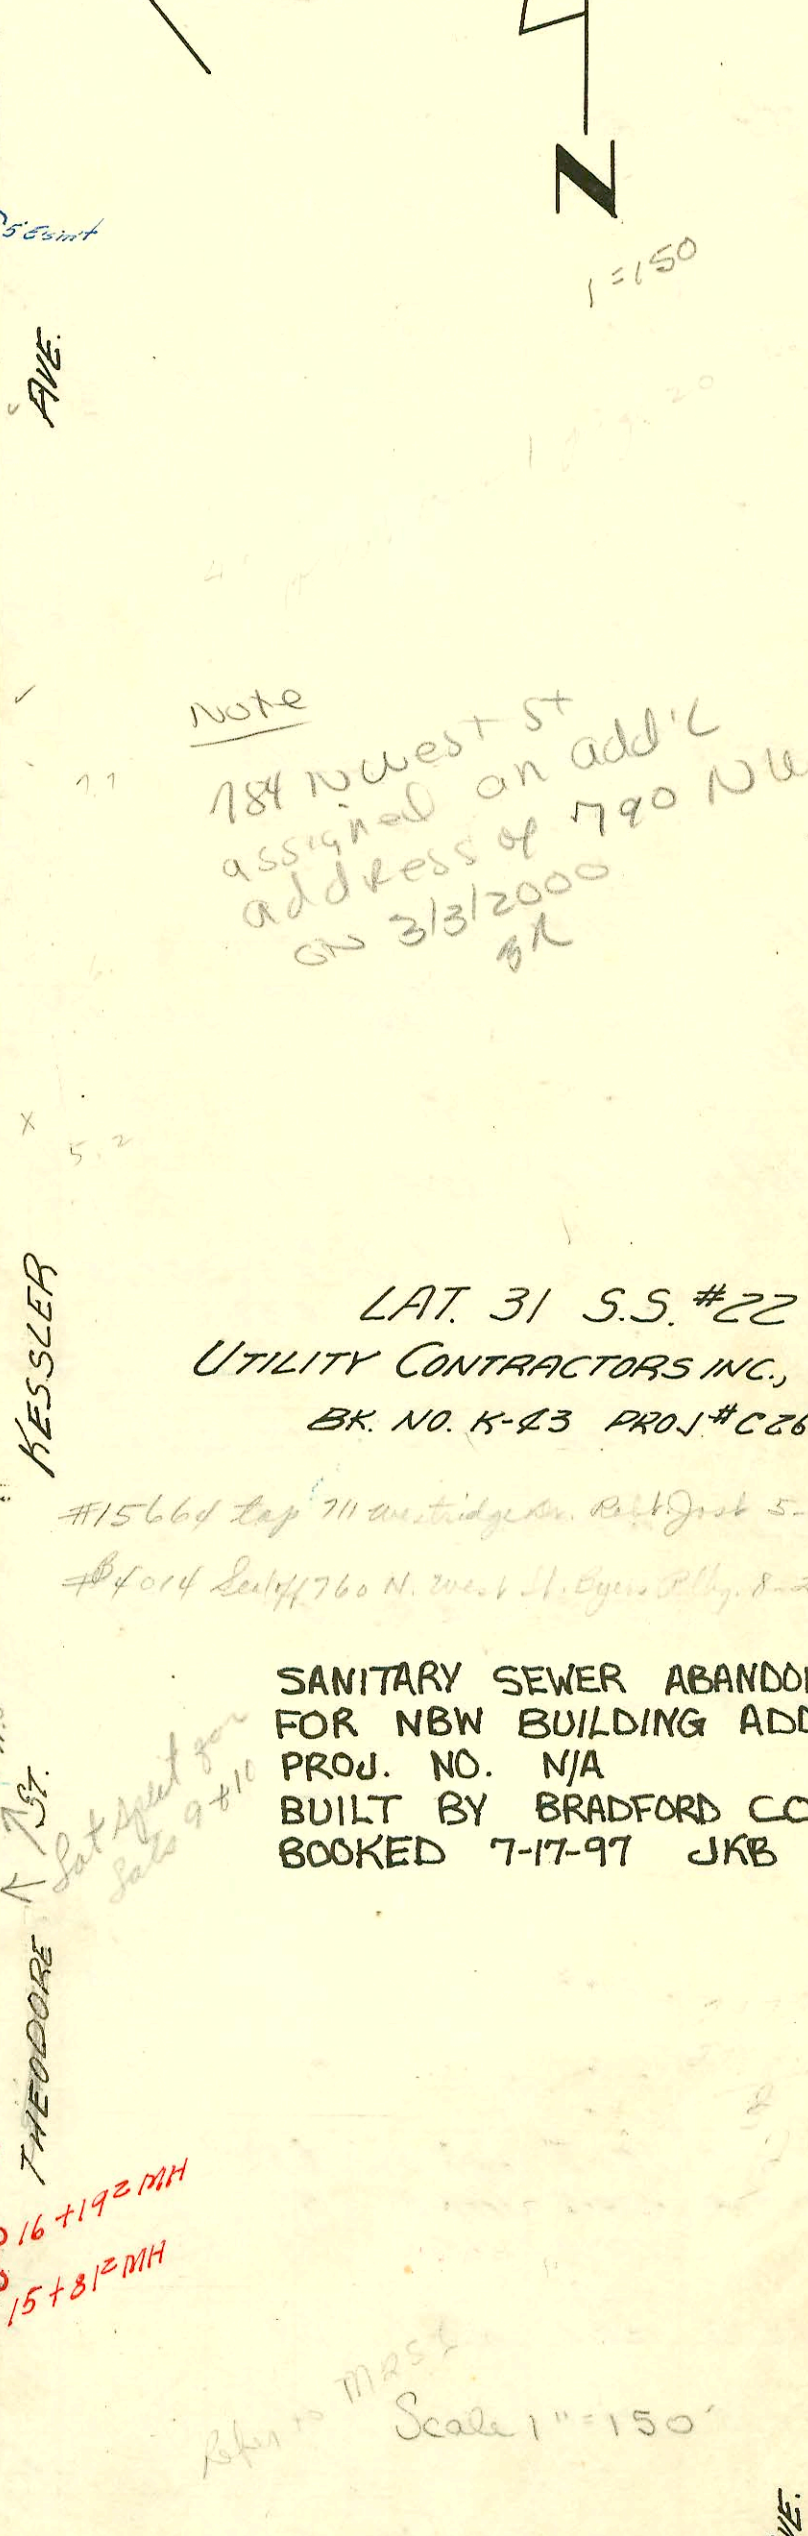 N
1=150
5' Esmt
AVE.
Note
784 N West St
assigned an add'l
address of 790 N W
ON 3/3/2000
7.7
5.2
KESSLER
LAT. 31 S.S. #22
UTILITY CONTRACTORS INC.,
BK. NO. K-43 PROJ # C26
#15664 tap 711 Westridge Dr. Robt. Jost 5-
#B4014 Sealoff 760 N. West St. Byers Plbg. 8-2
SANITARY SEWER ABANDO
FOR NBW BUILDING ADD
PROJ. NO. N/A
BUILT BY BRADFORD CO
BOOKED 7-17-97 JKB
ST.
Lat split for
Lots 9+10
THEODORE
16+19² MH
15+81² MH
Refer to
Scale 1"=150'
VE.